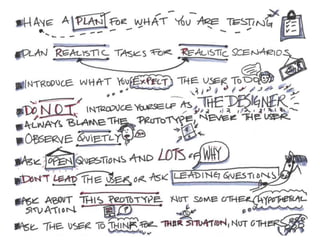 HAVE A PLAN FOR WHAT YOU ARE TESTING
PLAN REALISTIC TASKS FOR REALISTIC SCENARIOS
INTRODUCE WHAT YOU EXPECT THE USER TO DO
DO NOT INTRODUCE YOURSELF AS THE DESIGNER
ALWAYS BLAME THE PROTOTYPE, NEVER THE USER
OBSERVE QUIETLY
ASK OPEN QUESTIONS AND LOTS OF WHY
DON'T LEAD THE USER OR ASK LEADING QUESTIONS
ASK ABOUT THIS PROTOTYPE NOT SOME OTHER HYPOTHETICAL
SITUATION
ASK THE USER TO THINK FOR THEIR SITUATION, NOT OTHER